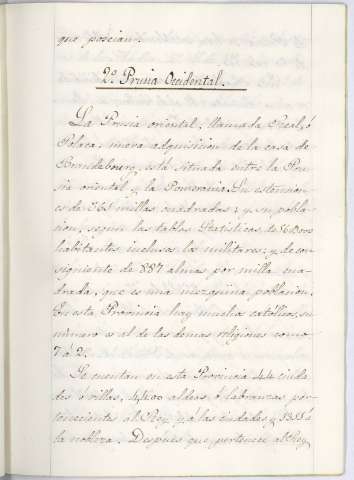 que poseian.
2º Prusia Occidental.
La Prusia oriental, llamada Real, ó
Polaca, nueva adquisicion de la casa de
Brandebourg, está situada entre la Pru-
sia oriental y la Pomerania. Su estension
es de 631 millas cuadradas; y su pobla-
cion, segun las tablas Statisticas, de
habitantes inclusos los militares; y de con-
siguiente de 887 almas por milla cua-
drada, que es una mezquina poblacion.
En esta Provincia hay muchos catolicos; su
número es al de las demas religiones como
7 á 2.
Se cuentan en esta Provincia 44 ciuda-
des ó villas, 4,400 aldeas ó labranzas per-
tenecientes al Rey, y á las ciudades y á
la nobleza. Despues que pertenece al Rey